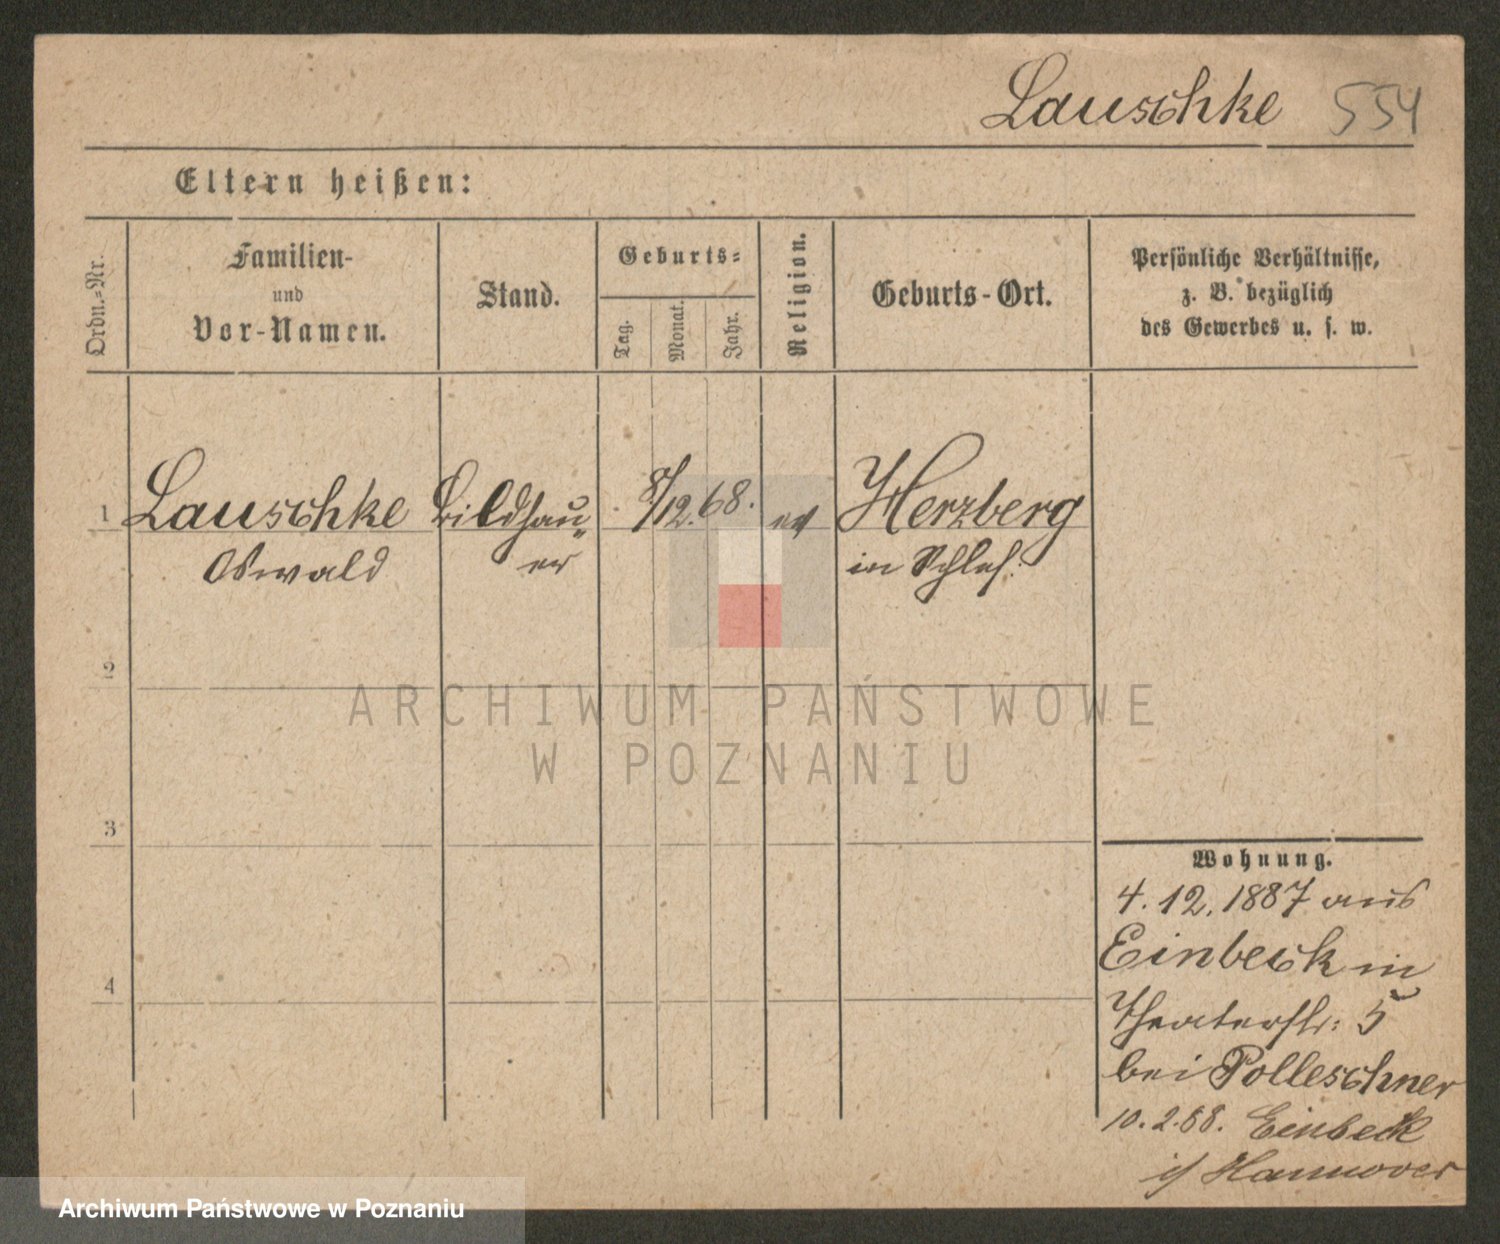 Lauschke 554
Eltern heißen:
Ordn.=Nr.
Familien-
und
Vor-Namen.
Stand.
Geburts=
Tag.
Monat.
Jahr.
Religion.
Geburts-Ort.
Persönliche Verhältnisse,
z. B. bezüglich
des Gewerbes u. s. w.
1 Lauschke Bildhau= 8/12. 68. ev Herzberg
Oswald er in Schles:
2
ARCHIWUM PAŃSTWOWE
W POZNANIU
3
4
Wohnung.
4. 12. 1887 aus
Einbeck in
Theaterstr: 5
bei Polleschner
10. 2. 88. Einbeck
i/ Hannover
Archiwum Państwowe w Poznaniu